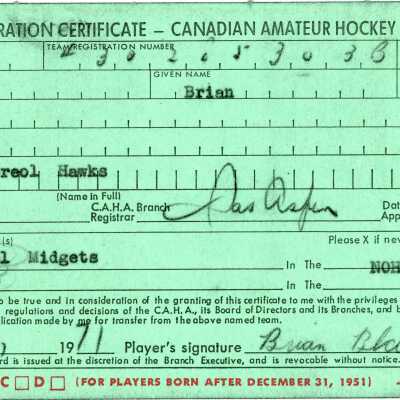 RATION CERTIFICATE – CANADIAN AMATEUR HOCKEY
TEAM REGISTRATION NUMBER
GIVEN NAME
Brian
reol Hawks
(Name in Full)
C.A.H.A. Branch
Registrar
Dat
App
(s)
Please X if new
l Midgets
In The
NOH
In The
o be true and in consideration of the granting of this certificate to me with the privileges
regulations and decisions of the C.A.H.A., its Board of Directors and its Branches, and b
lication made by me for transfer from the above named team.
19 71 Player's signature Brian
rd is issued at the discretion of the Branch Executive, and is revocable without notice.
C D (FOR PLAYERS BORN AFTER DECEMBER 31, 1951)